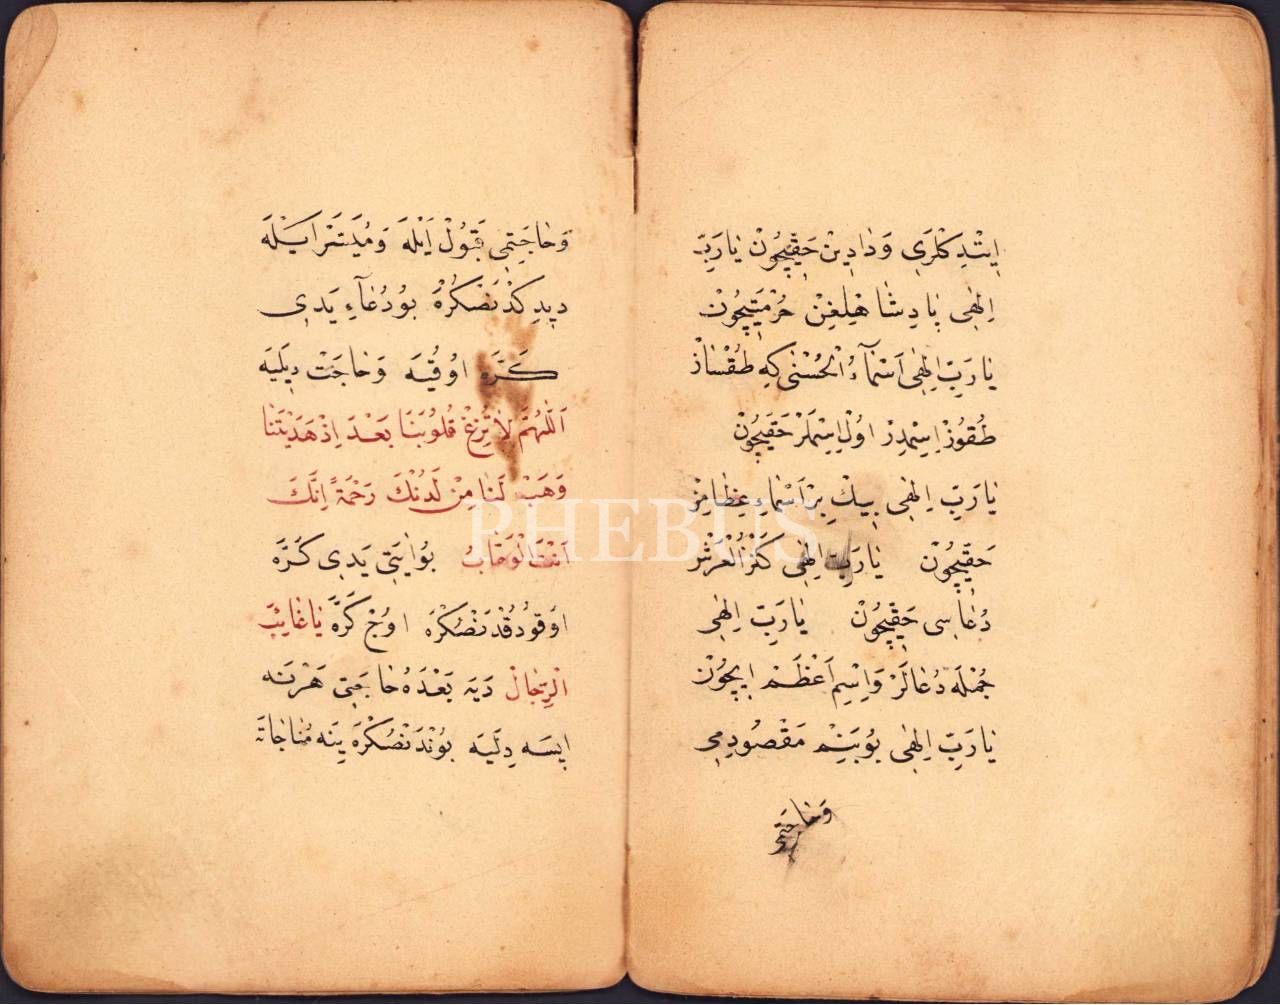 اِيتْدِكْلَرِى وَدَادِينْ حَقِّيچُونْ يَارَبِّ
اِلٰهِى پَادِشَاهْلِغِنْ حُرْمَتِيچُونْ
يَارَبِّ اِلٰهِى اَسْمَآءُ الْحُسْنٰى كِه طُقْسَانْ
طُقُوزْ اِسِمْدِرْ اُولْ اِسِمْلَرْ حَقِّيچُونْ
يَارَبِّ اِلٰهِى بِيكْ بِرْ اَسْمَاءِ عِظَامِنْ
حَقِّيچُونْ يَارَبِّ اِلٰهِى كَنْزُ الْعَرْشْ
دُعَاسِى حَقِّيچُونْ يَارَبِّ اِلٰهِى
جُمْلَه دُعَالَرْ وَاِسْمِ اَعْظَمْ اِيچُونْ
يَارَبِّ اِلٰهِى بُو بَنِمْ مَقْصُودِمِى
وَحَاجَتِمِى
وَحَاجَتِمِى قَبُولْ اَيْلَه وَمُيَسَّرْ اَيْلَه
دِيدِكْدَنْصَكْرَه بُو دُعَآءِ يَدِى
كَرَّه اُوقُيَه وَحَاجَتْ دِيلَيَه
اَللّٰهُمَّ لَا تُزِغْ قُلُوبَنَا بَعْدَ اِذْ هَدَيْتَنَا
وَهَبْ لَنَا مِنْ لَدُنْكَ رَحْمَةً اِنَّكَ
اَنْتَ الْوَهَّابُ بُو اٰيَتِى يَدِى كَرَّه
اوُقُودُقْدَنْصُكْرَه اوُچْ كَرَّه يَا غَائِبَ
الْرِّجَالْ دَيَه بَعْدَهُ حَاجَتِى هَرْنَه
اِيسَه دِلَيَه بُونْدَنْصُكْرَه يِنَه مُنَاجَاتَه
PHEBUS